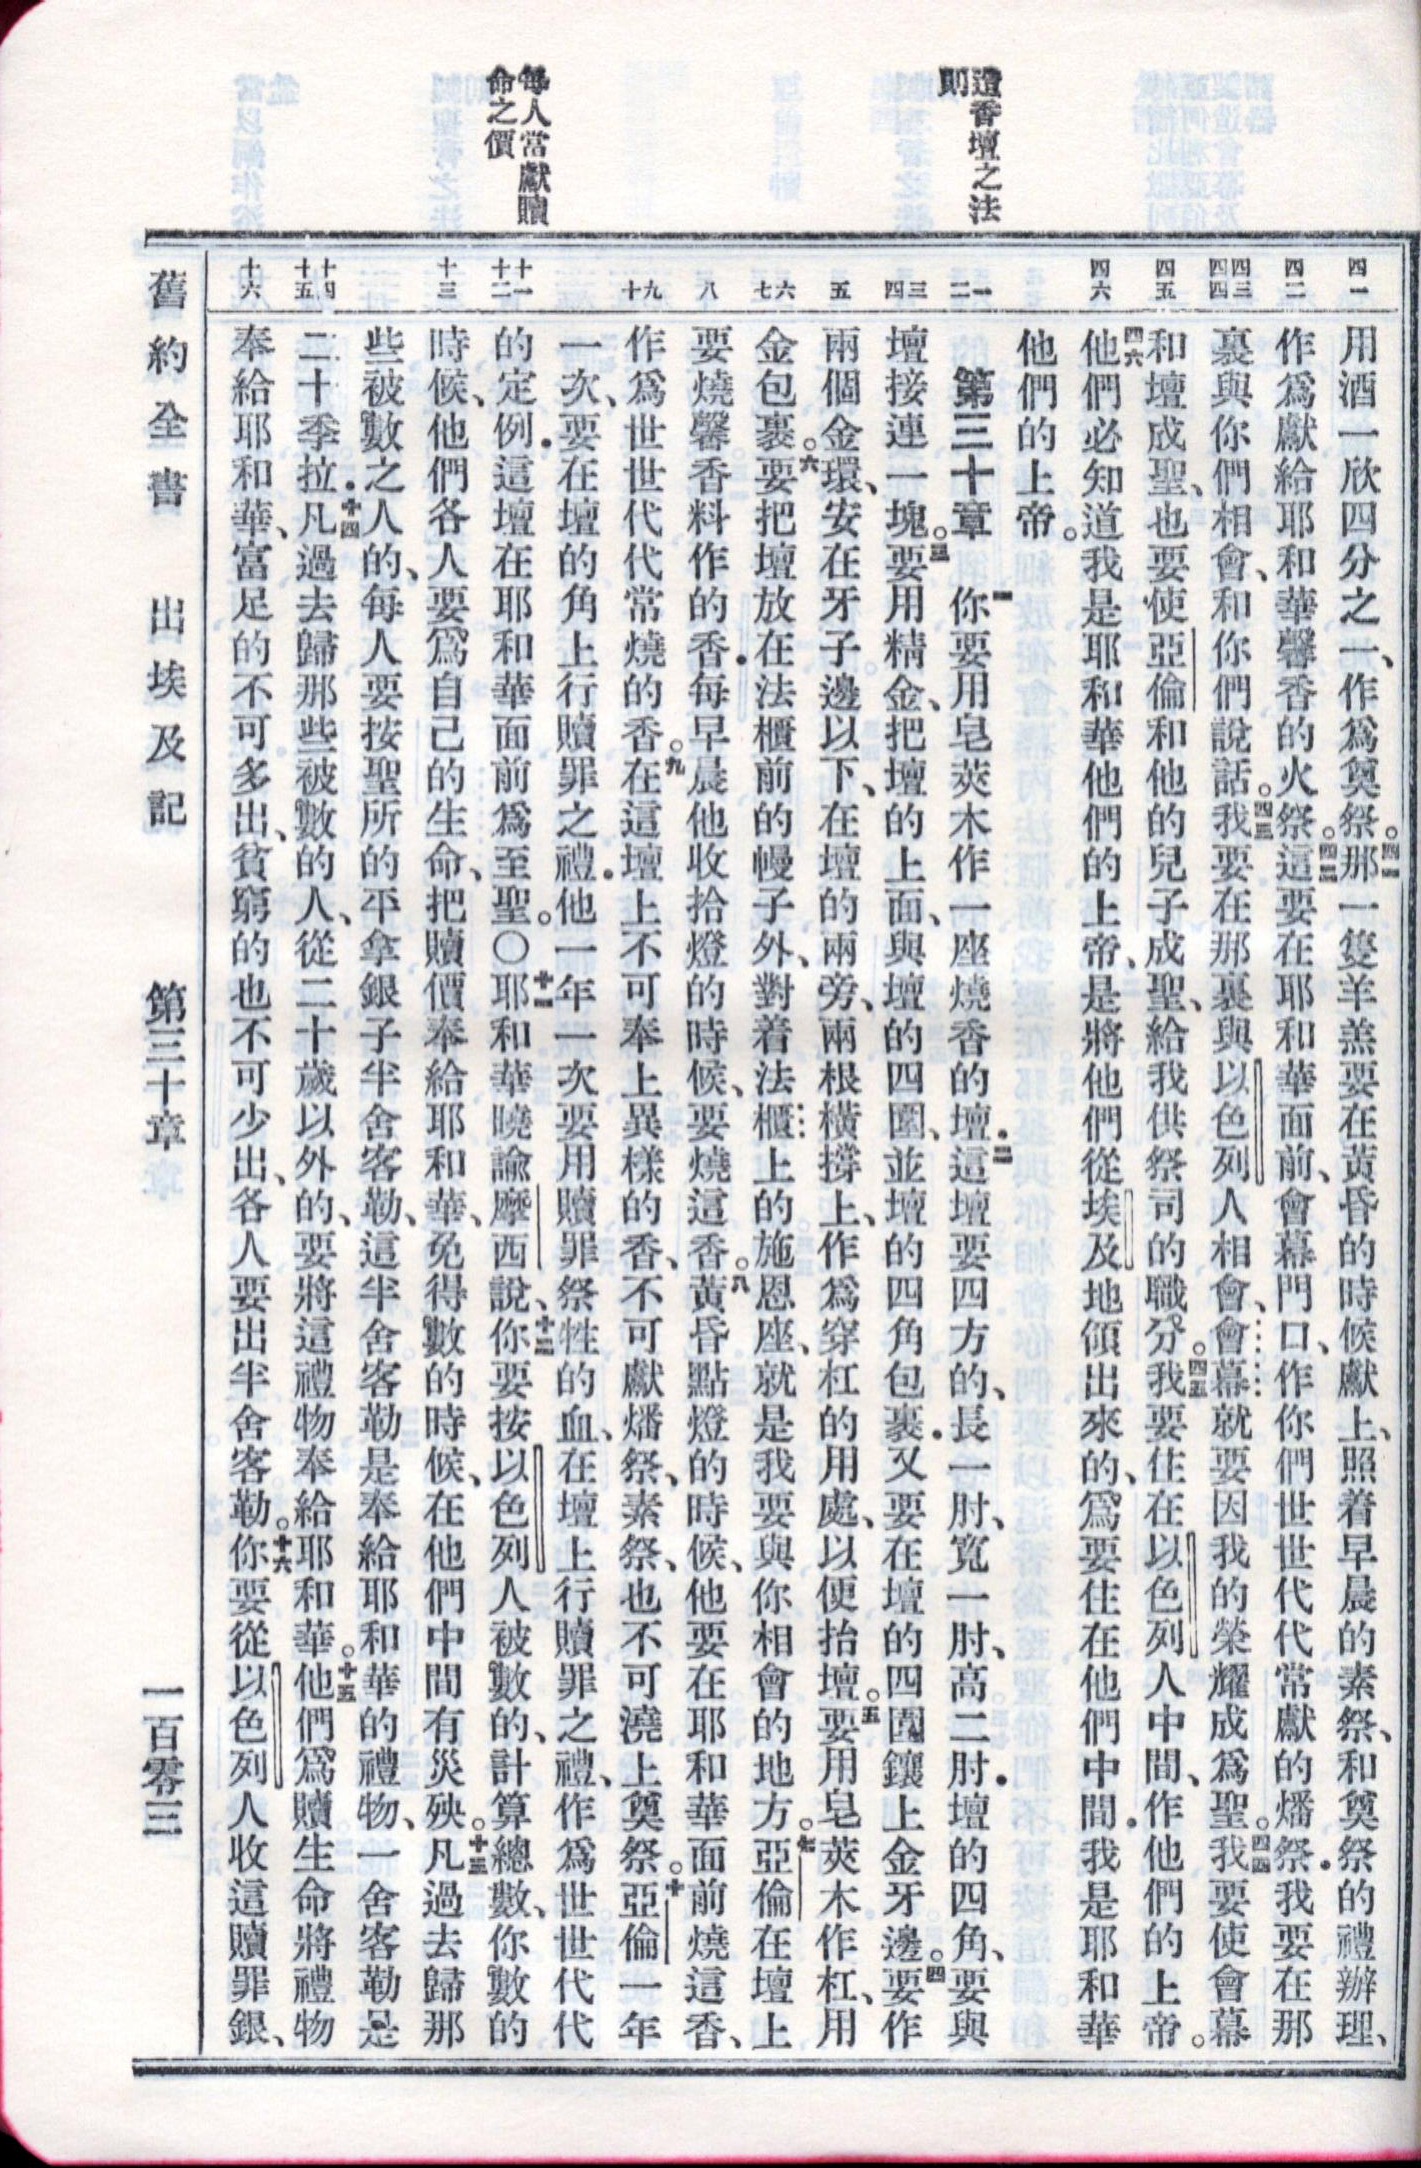 造香壇之法
則
每人當獻贖
命之價
四一
四二
四三
四四
四五
四六
一
二
三
四
五
六
七
八
九
十
十一
十二
十三
十四
十五
十六
用酒一欣四分之一、作爲奠祭。四一那一隻羊羔要在黃昏的時候獻上、照着早晨的素祭、和奠祭的禮辦理、
作爲獻給耶和華馨香的火祭。四二這要在耶和華面前、會幕門口、作你們世世代代常獻的燔祭．我要在那
裏與你們相會、和你們說話。四三我要在那裏與以色列人相會、會幕就要因我的榮耀成爲聖。四四我要使會幕
和壇成聖、也要使亞倫和他的兒子成聖、給我供祭司的職分。四五我要住在以色列人中間、作他們的上帝。
四六他們必知道我是耶和華他們的上帝、是將他們從埃及地領出來的、爲要住在他們中間．我是耶和華
他們的上帝。
第三十章 一你要用皂莢木作一座燒香的壇．二這壇要四方的、長一肘、寬一肘、高二肘．壇的四角、要與
壇接連一塊。三要用精金、把壇的上面、與壇的四圍、並壇的四角包裹．又要在壇的四圍鑲上金牙邊。四要作
兩個金環、安在牙子邊以下、在壇的兩旁、兩根橫撐上、作爲穿杠的用處、以便抬壇。五要用皂莢木作杠、用
金包裹。六要把壇放在法櫃前的幔子外、對着法櫃上的施恩座、就是我要與你相會的地方。七亞倫在壇上
要燒馨香料作的香．每早晨他收拾燈的時候、要燒這香。八黃昏點燈的時候、他要在耶和華面前燒這香、
作爲世世代代常燒的香。九在這壇上不可奉上異樣的香、不可獻燔祭、素祭、也不可澆上奠祭。十亞倫一年
一次、要在壇的角上行贖罪之禮．他一年一次要用贖罪祭牲的血、在壇上行贖罪之禮、作爲世世代代
的定例．這壇在耶和華面前爲至聖。○十一耶和華曉諭摩西說、十二你要按以色列人被數的、計算總數、你數的
時候、他們各人要爲自己的生命、把贖價奉給耶和華、免得數的時候、在他們中間有災殃。十三凡過去歸那
些被數之人的、每人要按聖所的平、拿銀子半舍客勒、這半舍客勒是奉給耶和華的禮物、一舍客勒是
二十季拉．十四凡過去歸那些被數的人、從二十歲以外的、要將這禮物奉給耶和華。十五他們爲贖生命將禮物
奉給耶和華、富足的不可多出、貧窮的也不可少出、各人要出半舍客勒。十六你要從以色列人收這贖罪銀、
舊約全書 出埃及記 第三十章 一百零三